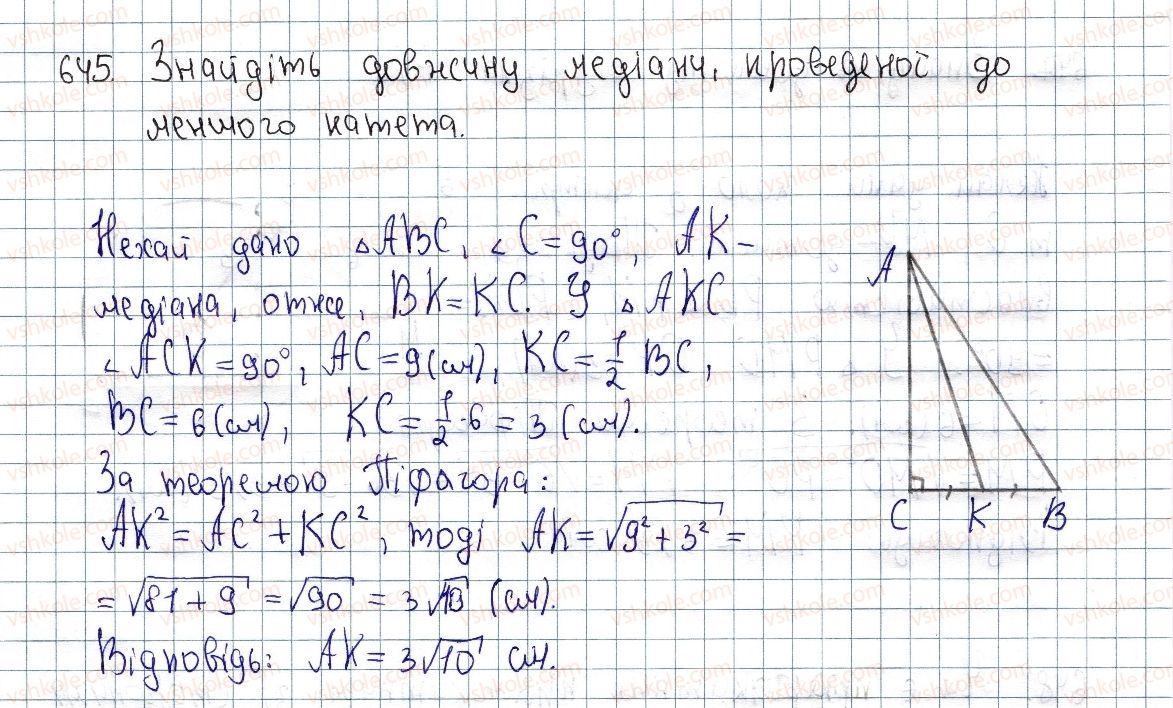 645. Знайдіть довжину медіани, проведеної до
меншого катета.
Нехай дано △ABC, ∠C = 90°, AK –
медіана, отже, BK = KC. У △AKC
∠ACK = 90°, AC = 9 (см), KC = 1/2 BC,
BC = 6 (см), KC = 1/2 · 6 = 3 (см).
За теоремою Піфагора:
AK² = AC² + KC², тоді AK = √(9² + 3²) =
= √(81 + 9) = √90 = 3√10 (см).
Відповідь: AK = 3√10 см.
A
C K B
vshkole.com